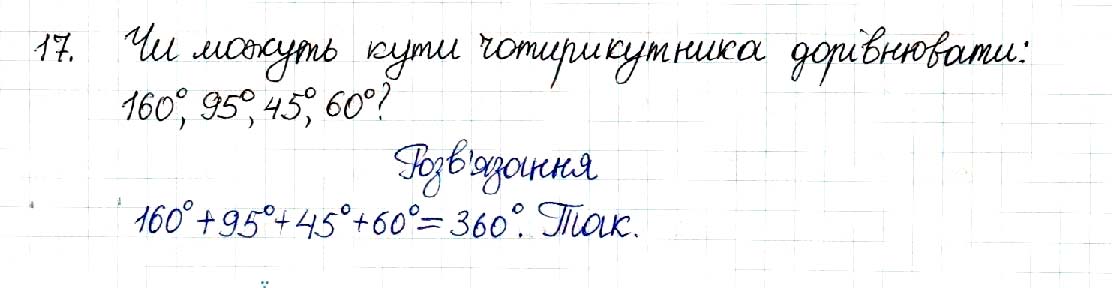 17. Чи можуть кути чотирикутника дорівнювати:
160°, 95°, 45°, 60°?
Розв'язання
160° + 95° + 45° + 60° = 360°. Так.